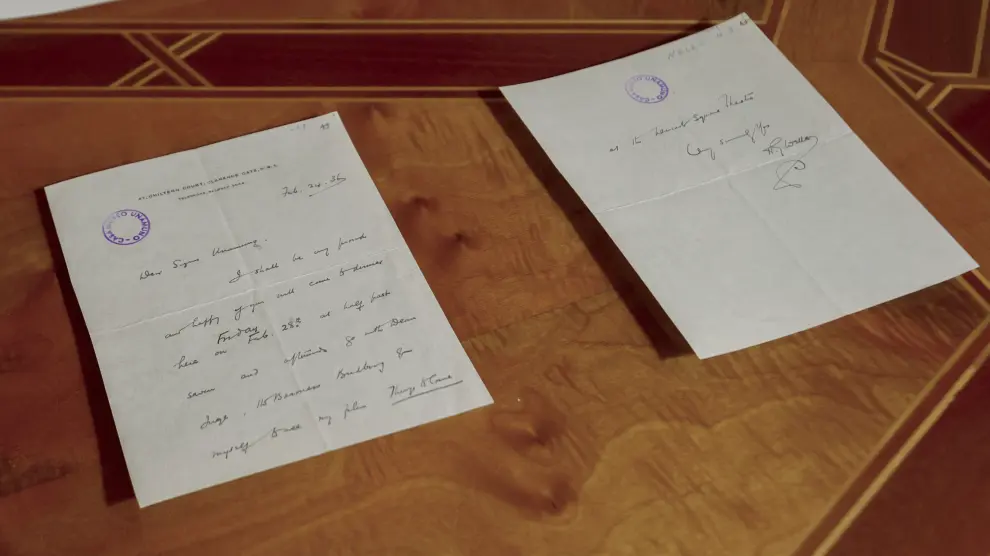 47, CHILTERN COURT, CLARENCE GATE, N.W.1.
Feb. 24. 36
CASA MUSEO UNAMUNO
Dear Signor Unamuno,
I shall be very proud
and happy if you will come to dinner
here on Friday Feb. 28th at half past
seven and afterwards go with Dean
Inge, the Baroness Budberg &
myself to see my film Things to Come
CASA MUSEO UNAMUNO
at the Leicester Square Theatre
Very sincerely yrs
H. G. Wells